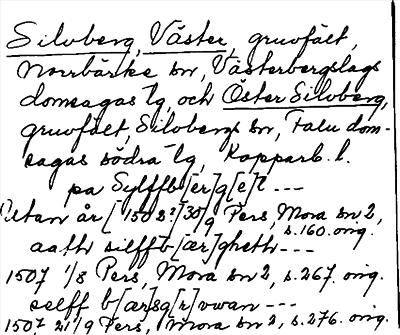 Silvberg, Väster, gruvfält,
Norrbärke sn, Västerbergslags
domsagas tg, och Öster Silvberg,
gruvfält, Silvbergs sn, Falu dom-
sagas södra tg, Kopparb. l.
pa Sylffb[er]g[e]t ---
Utan år [1502?] 30/9 Pers, Mora sn 2,
s. 160. orig.
aath silffb[ær]gheth---
1507 1/8 Pers, Mora sn 2, s. 267. orig.
selff b[ær]sg[r]vwan ---
1507 21/9 Pers, Mora sn 2, s. 276. orig.